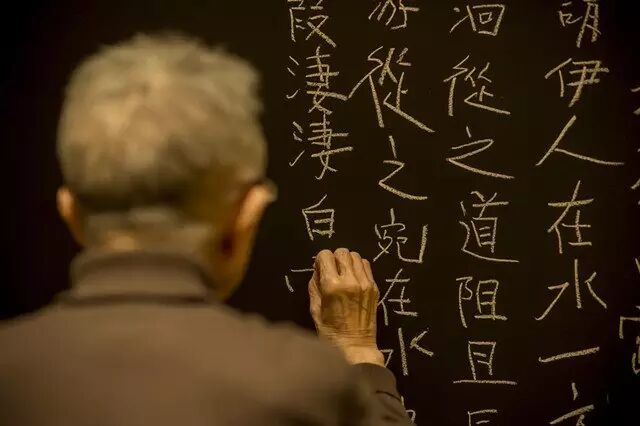 謂伊人在水一方
洄從之道阻且長
游從之宛在水
葭淒淒白